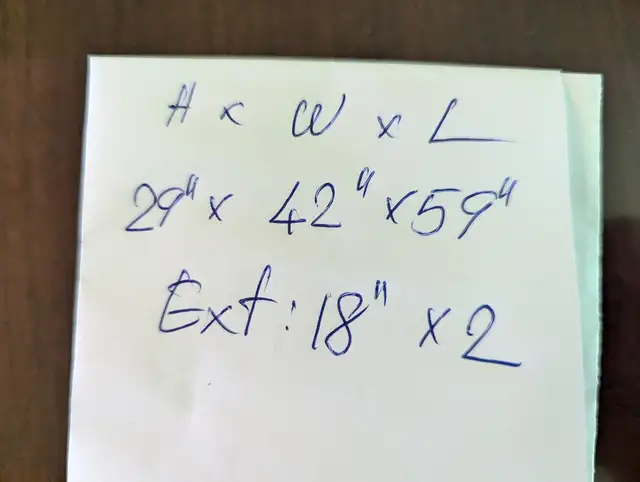 H x W x L
29" x 42" x 59"
Ext: 18" x 2